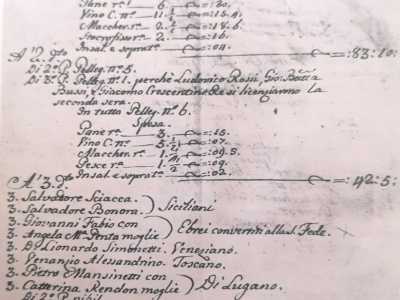 Pane r.i 6. =:20.
Vino C. n.o 11. 1/2 =:15.4.
Maccher. n.o 2. 1/2 =:18.6.
2. =:16.
Insal. e soprat.o =:04.
A' 2. gto =:83:10:
Di 2.a P. Pelleg. n.o 5.
Di 3.a P. Pelleg. n.o 1. perchè Ludovico Rossi, Gio: Batta
Bussi, e Giacomo Crescentino Re si licenziarono la
seconda sera.
In tutto Pelleg. n.o 6.
Spesa.
Pane r.a 3. =:15.
Vino C. n.o 5. =:07.
Maccher. n. 1. =:09.5.
Pesce r.a 1. =:09.
Insal. e soprat.o =:02.
A' 3. gto =:42:5:
3. Salvatore Sciacca.
3. Salvadore Bonora. ) Siciliani
3. Giovanni Fabio con
3. Angela M.a Penta moglie ) Ebrei convertiti alla S. Fede.
3. Di Lionardo Simonetti. Veneziano.
3. Venanzio Alesandrino. Toscano.
3. Pietro Mansinetti con
3. Catterina Rendon moglie ) Di Lugano.
Di 2.a P. nihil